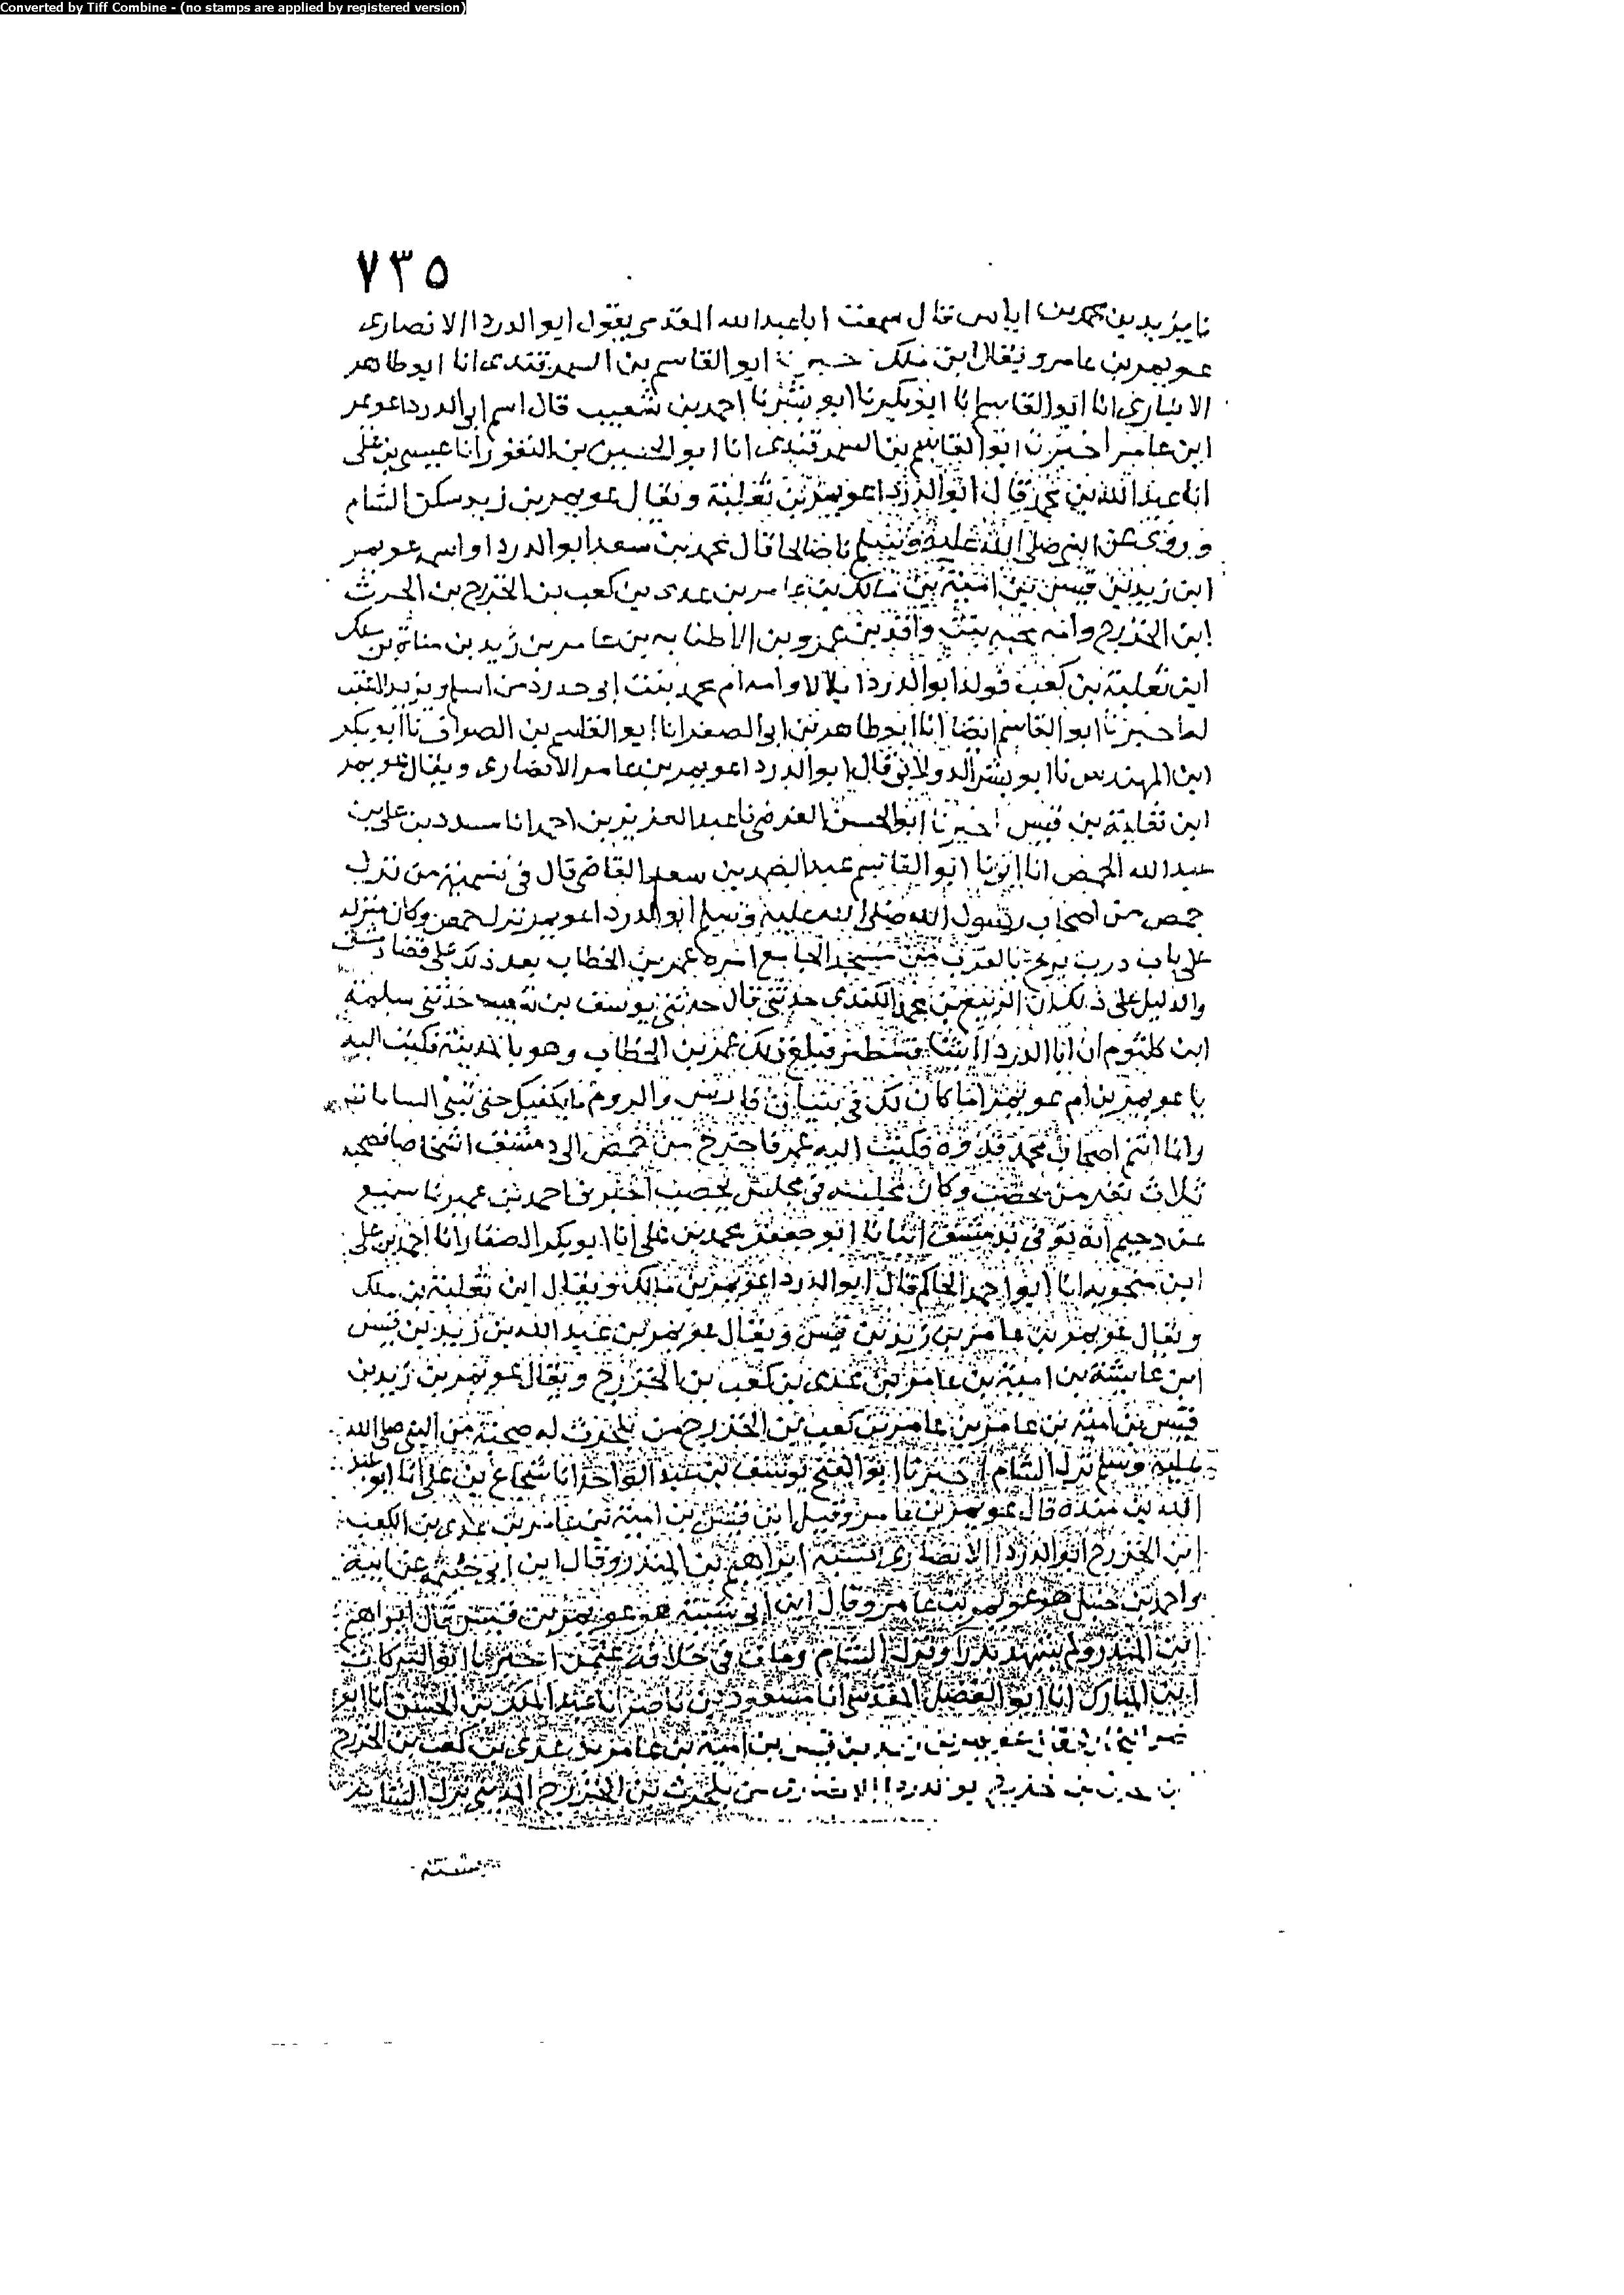 Converted by Tiff Combine - (no stamps are applied by registered version)
٧٣٥
نا يزيد بن محمد بن اياس قال سمعت ابا عبد الله المقدمي يقول ابو الدرداء الانصاري
عويمر بن عامر ويقال ابن ملك خبرنا ابو القاسم بن السمرقندي انا ابو طاهر
الانباري انا ابو القاسم انا ابو بكر نا ابو بشر نا احمد بن شعيب قال اسم ابي الدرداء عويمر
ابن عامر اخبرنا ابو القاسم بن السمرقندي انا ابو الحسين بن النقور انا عيسى بن علي
انا عبد الله بن محمد قال ابو الدرداء عويمر بن ثعلبة ويقال عويمر بن زيد سكن الشام
وروى عن النبي صلى الله عليه وسلم احاديث قال محمد بن سعد ابو الدرداء واسمه عويمر
ابن زيد بن قيس بن امية بن مالك بن عامر بن عدي بن كعب بن الخزرج بن الحرث
ابن الخزرج وامه محبه بنت واقد بن عمرو بن الاطنابه بن عامر بن زيد بن مناة بن ملك
ابن ثعلبة بن كعب فولد ابو الدرداء بلالا وامه ام محمد بنت ابي حدرد من اسلم ويزيد
اخبرنا ابو القاسم ايضا انا ابو طاهر بن ابي الصقر انا ابو القاسم بن الصواف نا ابو بكر
ابن المهندس نا ابو بشر الدولابي قال ابو الدرداء عويمر بن عامر الانصاري ويقال عويمر
ابن ثعلبة بن قيس اخبرنا ابو الحسن الفرضي نا عبد العزيز بن احمد انا مسدد بن علي بن
عبد الله الحمصي انا ابي نا ابو القاسم عبد الصمد بن سعيد القاضي قال في تسمية من نزل
حمص من اصحاب رسول الله صلى الله عليه وسلم ابو الدرداء عويمر نزل حمص وكان منزله
على باب درب بالقرب من مسجد الجامع امره عمر بن الخطاب بعد ذلك على قضا دمشق
والدليل على ذلك ان الربيع بن محمد الكندي حدثني قال حدثني يوسف بن سعيد حدثني سلمة
ابن كلثوم ان ابا الدرداء ابتنا فبلغ ذلك عمر بن الخطاب وهو بالمدينة فكتب اليه
يا عويمر بن ام عويمر اما كان لك في بنيان فارس والروم ما يكفيك حتى تبني البنيانات
وانما انتم اصحاب محمد قدوة فكتب اليه عمر فاخرج من حمص الى دمشق
ثلاث نفر من يحصب وكان مجلسه في مجلس يحصب اخبرنا احمد بن عمير نا سميع
عن دحيم انه توفي بدمشق انبانا ابو جعفر محمد بن علي انا ابو بكر الصفار انا احمد بن علي
ابن منجويه انا ابو احمد الحاكم قال ابو الدرداء عويمر بن مالك ويقال ابن ثعلبة بن ملك
ويقال عويمر بن عامر بن زيد بن قيس ويقال عويمر بن عبد الله بن زيد بن قيس
ابن عايشة بن امية بن عامر بن عدي بن كعب بن الخزرج ويقال عويمر بن زيد بن
قيس بن امية بن عامر بن عامر بن كعب بن الخزرج من بلحرث له صحبة من النبي صلى الله
عليه وسلم نزل الشام اخبرنا ابو الفتح يوسف بن عبد الواحد انا شجاع بن علي انا ابو عبد
الله بن منده قال عويمر بن عامر وقيل ابن قيس بن امية بن عامر بن عدي بن الكعب
ابن الخزرج ابو الدرداء الانصاري نسبه ابراهيم بن المنذر وقال ابن ابي خيثمة عن ابيه
واحمد بن حنبل هو عويمر بن عامر وقال ابن ابي شيبة هو عويمر بن قيس قال ابراهيم
ابن المنذر ولم يشهد بدرا ونزل الشام ومات في خلافة عثمن اخبرنا ابو البركات
ابن المبارك انا ابو الفضل المقدسي انا مسعود بن ناصر انا عبد الملك بن الحسن انا ابو
نصر عويمر بن زيد بن قيس بن امية بن عامر بن عدي بن كعب بن الخزرج
ابو الدرداء الانصاري من بلحرث بن الخزرج المديني نزل الشام